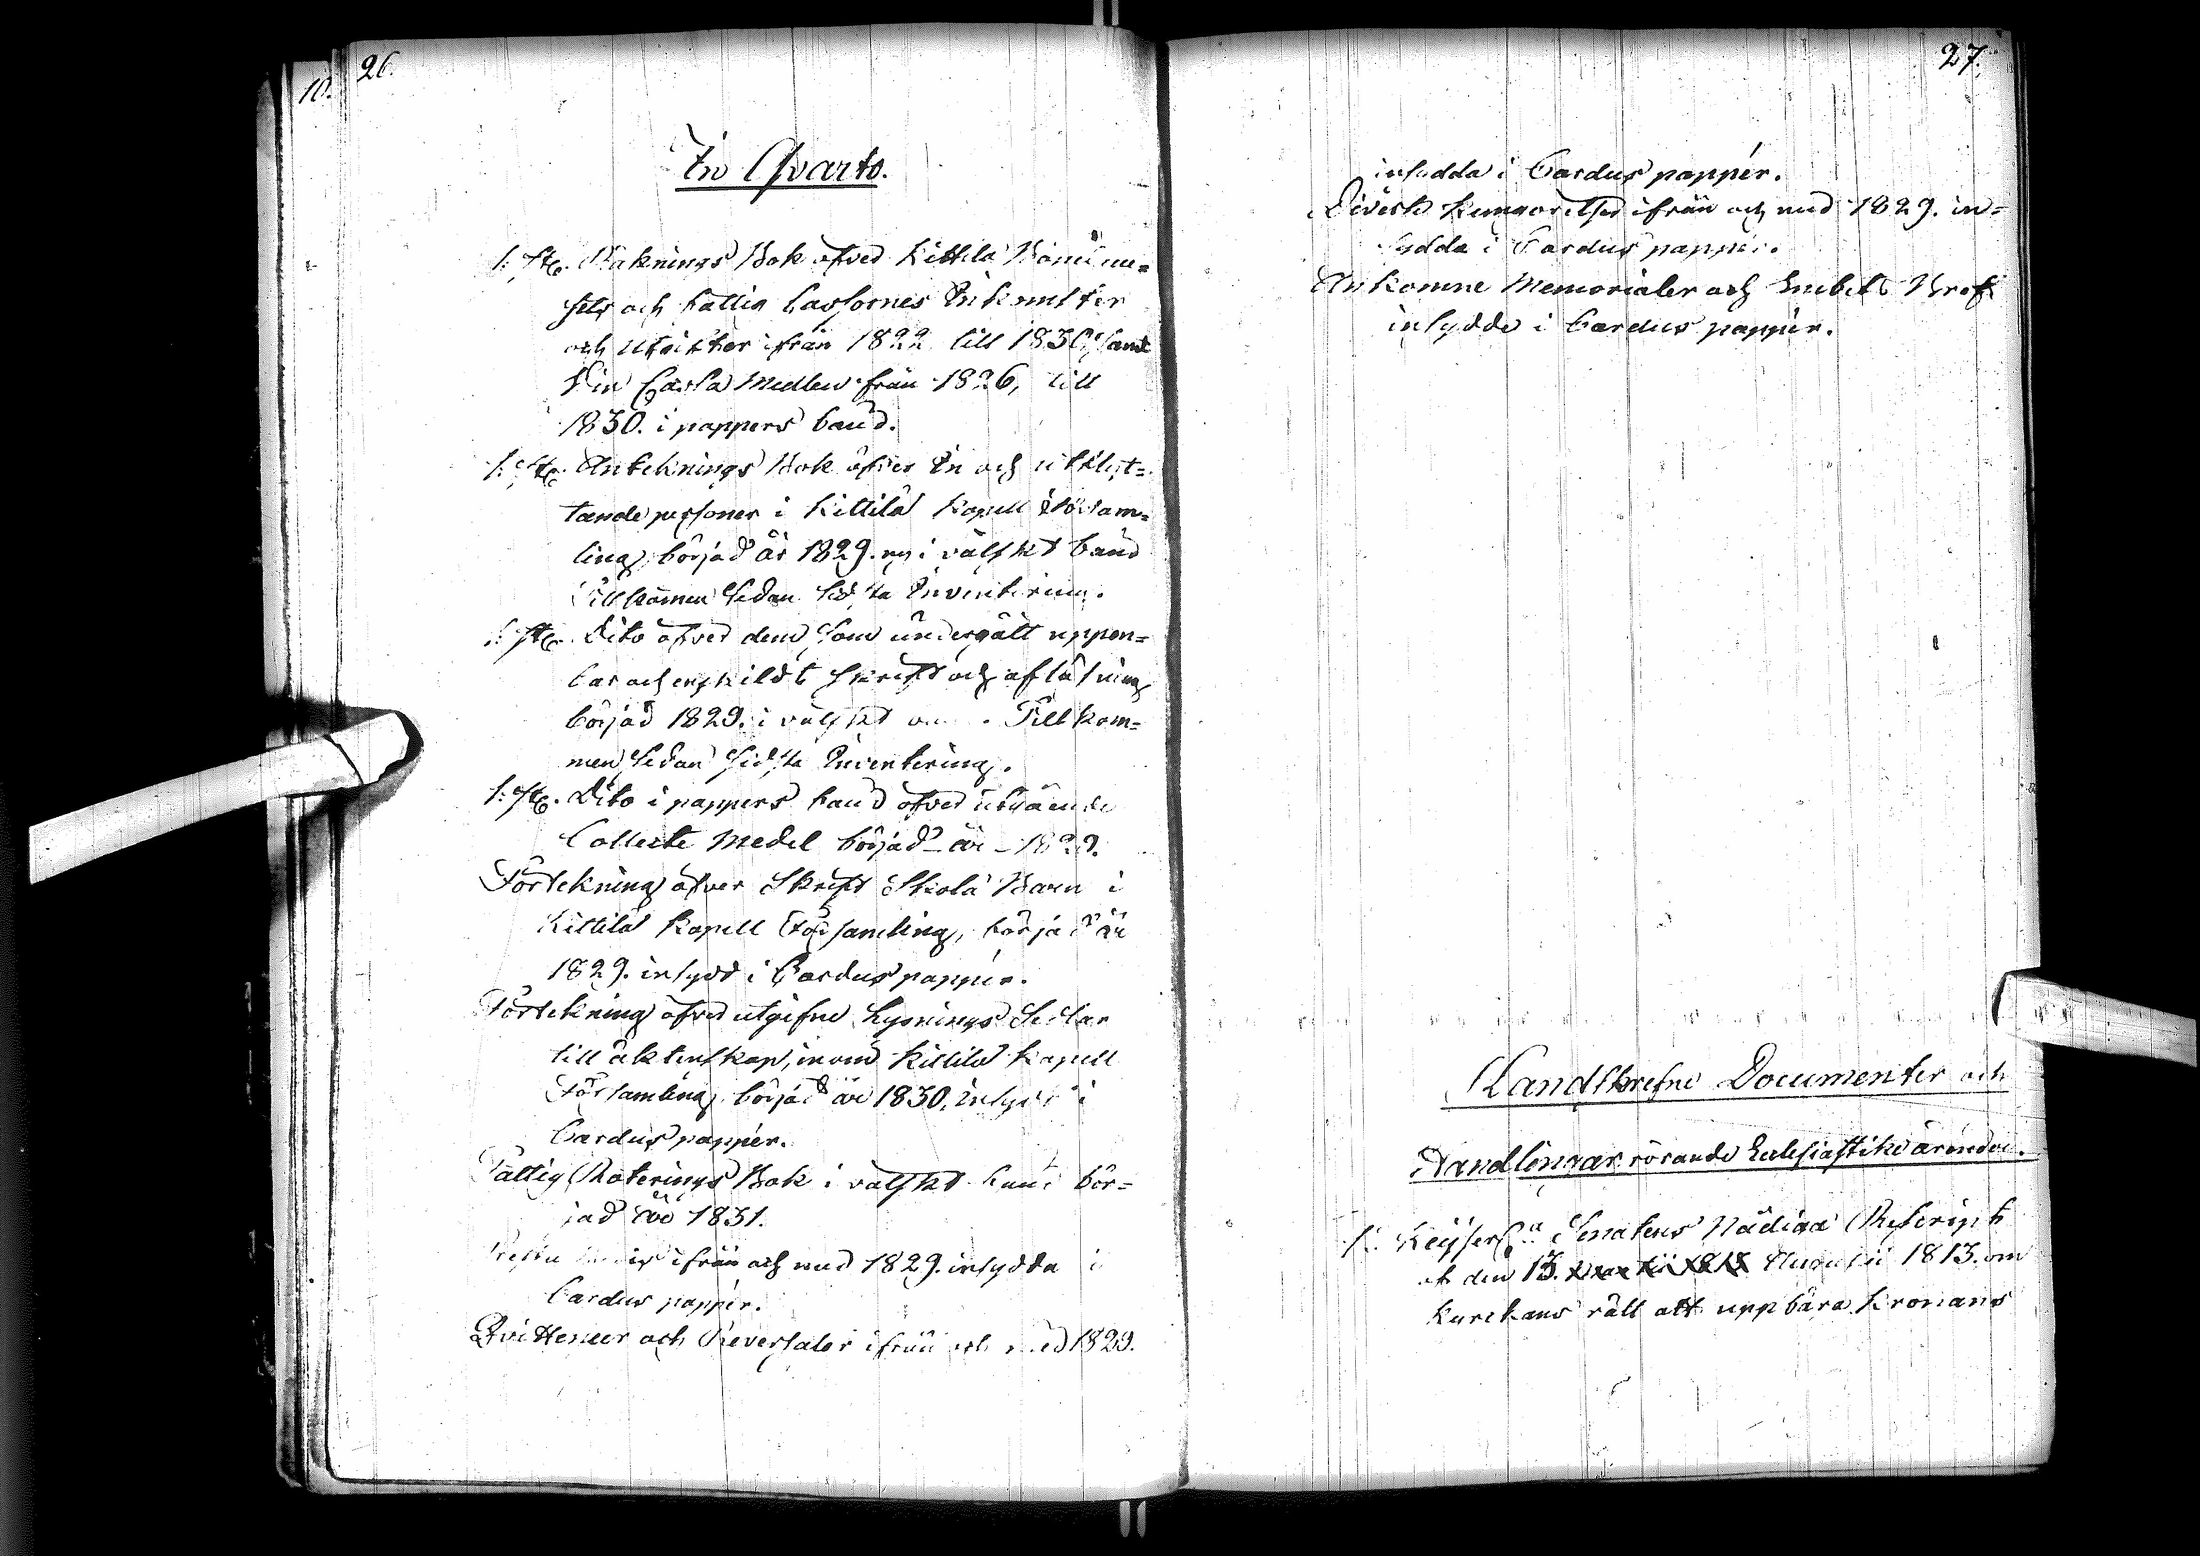 10.
26.
In Qvarto.
1. st. Räknings Bok öfver Kittilä
och Fattig Cassornes Inkomster
och Utgifter ifrån 1822 till 1830, samt
Vin Cassa Medlen från 1826, till
1830. i pappers band.
1. st. Anteknings Bok öfver In och utflyt=
tande personer i Kittilä Kapell Försam=
ling, börjad år 1829. ny i välskt band
Tillkommen sedan sidsta Inventering.
1. st. Dito öfver dem som undergått uppen=
bar och enskildt skrift och aflösning
börjad 1829. i välskt Tillkom=
men sedan sidsta Inventering.
1. st. Dito i pappers band öfver utgående
Collecte Medel börjad år 1829.
Förtekning öfver Skrift Skola Barn i
Kittilä Kapell Församling, börjad år
1829. insydd i Cardus papper.
Förtekning öfver utgifne Lysnings Sedlar
till äktenskap, inom Kittilä Kapell
Församling börjad år 1830, insydd i
Cardus papper.
Fattig Roterings Bok i välskt band bör=
jad år 1831.
ifrån och med 1829. insydda i
Cardus papper.
Qvittencer och Reversaler ifrån och med 1829.
27.
insydda i Cardus papper.
Diverse kungörelser ifrån och med 1829. in=
sydda i Cardus papper.
Ankomne Memorialer och Embets Bref
insydde i Cardus papper.
Handskrefne Documenter och
Handlingar rörande Ecclesiastike ärender.
1. Keijserl. Senatens Nådiga Rescript
af den 13. Augusti 1813. om
Kyrckans rätt att uppbära Kronans